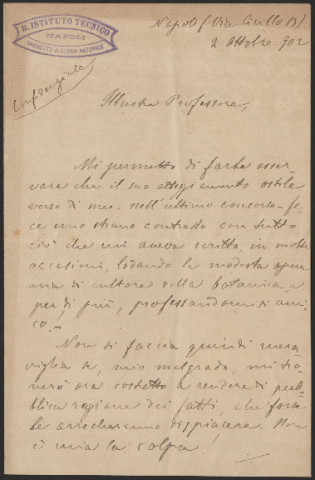 R. ISTITUTO TECNICO
NAPOLI
GABINETTO DI STORIA NATURALE
Napoli (Via Cirillo 13)
2 Ottobre 902
Confidenziale
Illustre Professore,
Mi permetto di farle osser-
vare che il suo atteggiamento ostile
verso di me nell'ultimo concorso fe-
ce uno strano contrasto con tutto
ciò che mi aveva scritto, in molte
occasioni, lodando la modesta opera
mia di cultore della botanica e
per di più, professandomisi ami-
co.
Non si faccia quindi mera-
viglia se, mio malgrado, mi tro-
verò ora costretto a rendere di pub-
blica ragione dei fatti, che forse
le arrecheranno dispiacere. Non
è mia la colpa!